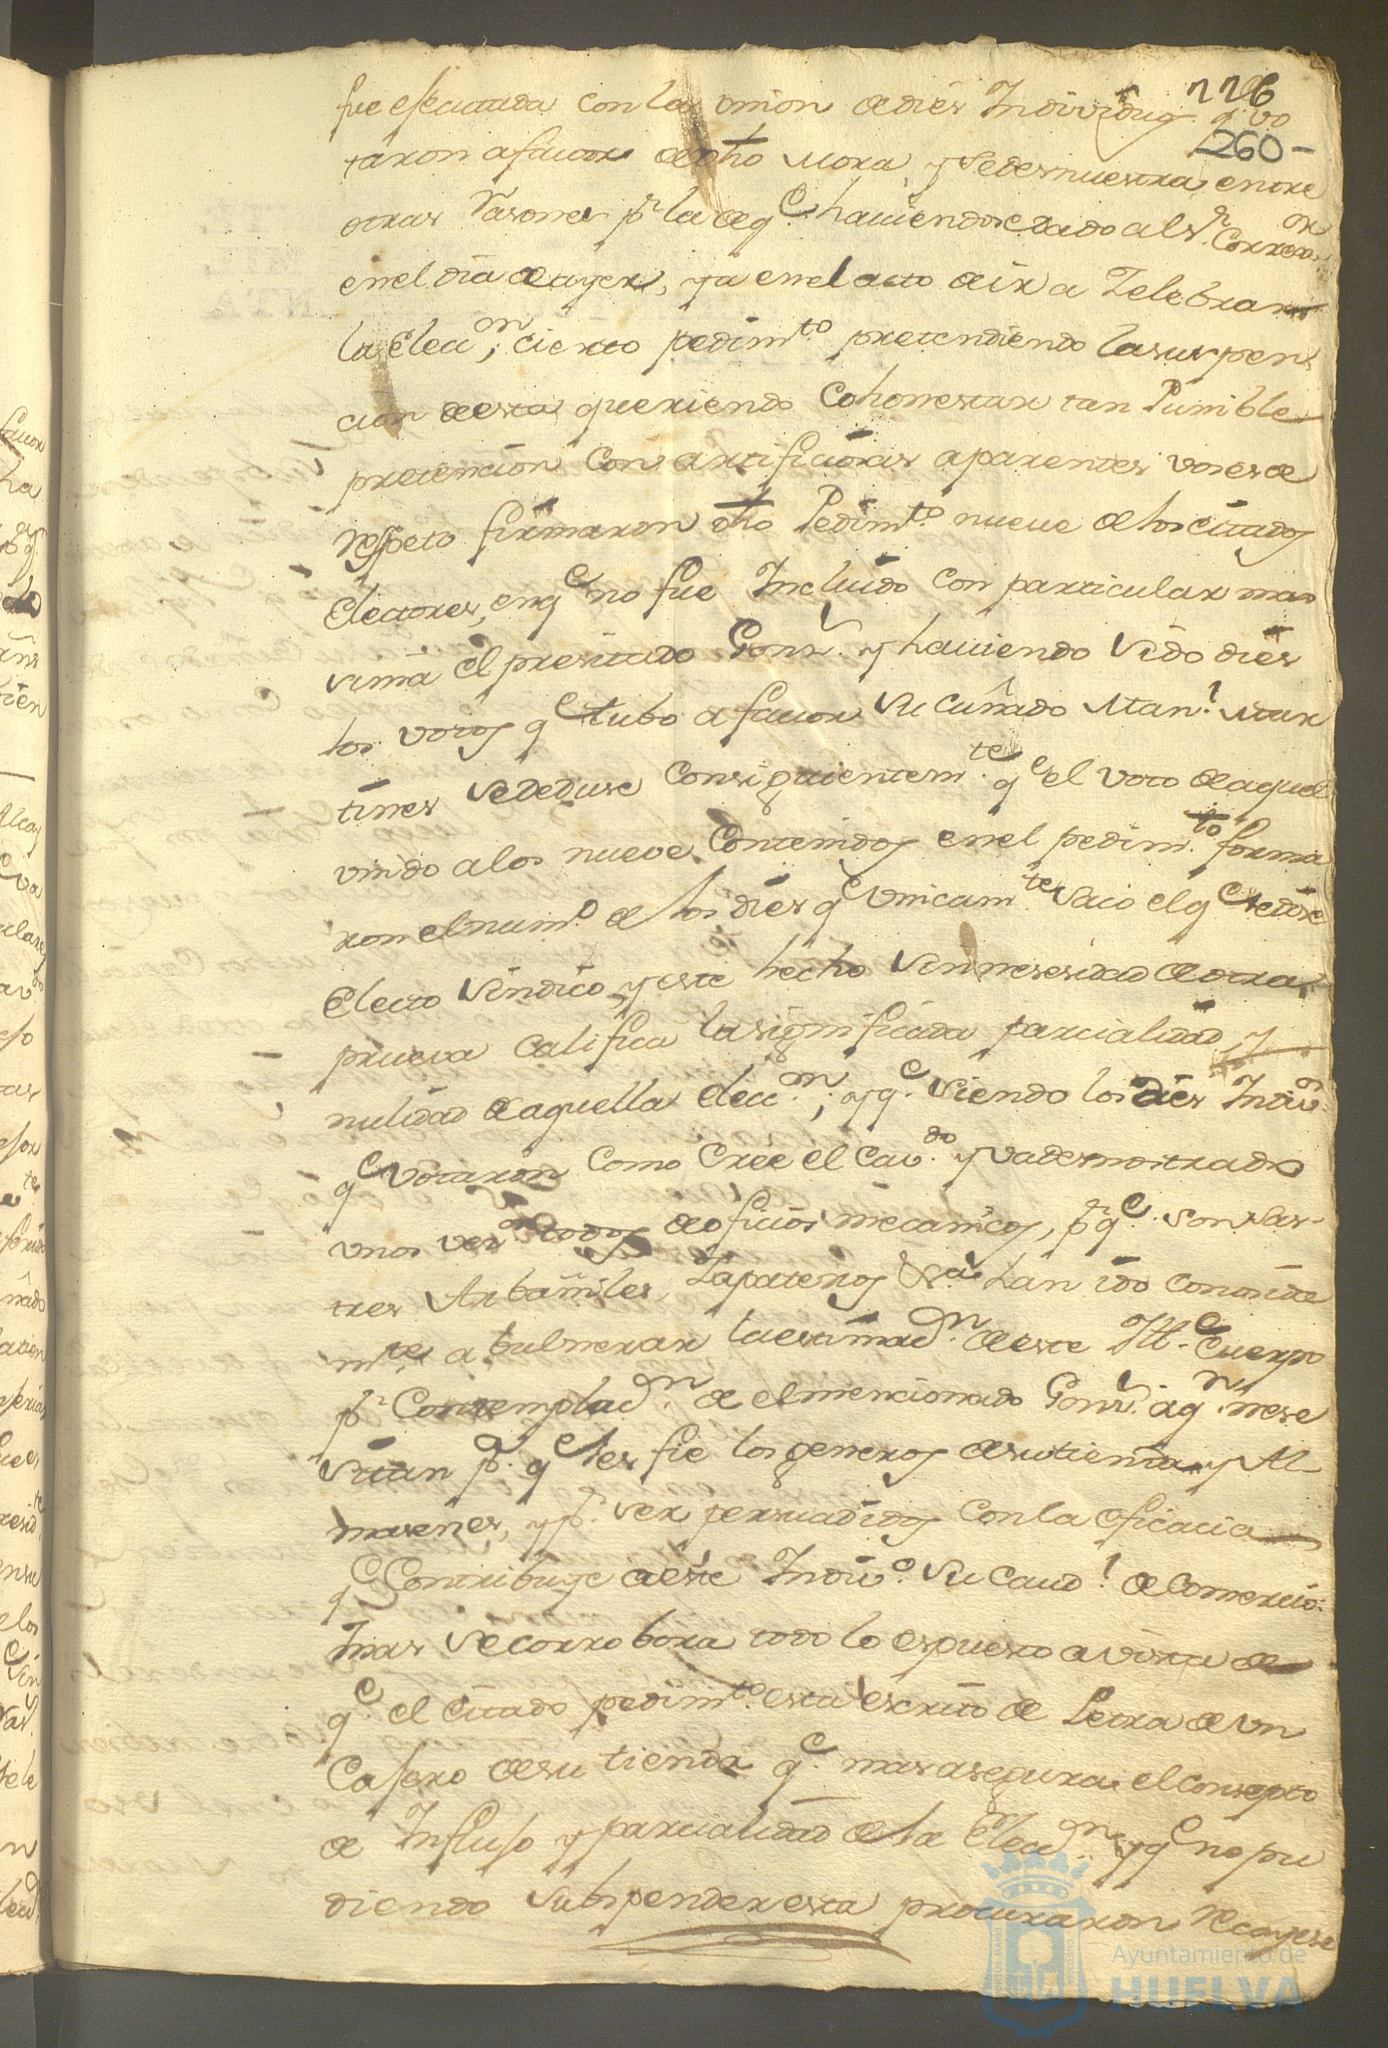 226
260
fue esecutada con la vnion de dies Individuos q.e vo
taron a fauor de dho Mora, y se desmuestra entre
otras rasones p.r la de q.e haviendose dado al s.r Corre.or
en el dia de ayer, ya en el acto de ir a Zelebrar
la elecc.on, cierto pedim.to pretendiendo la suspen
cion de esta queriendo cohonestar tan Punible
pretencion con artificiosas aparentes voses de
respeto firmaron dho Pedim.to nueve de los citados
Electores, en q.e no fue Incluido con particular ma
sima el precitado Gonz. y haviendo sido dies
los votos q.e tubo a fauor su cuñado Man.l Mar
tines se deduse consiguientem.te q.e el voto de aquel
vnido a los nueve contenidos en el pedim.to forma
ron el num.o de los dies q.e vnicam.te saco el q.e se dise
Electo sindico, y este hecho sin nesesidad de otra
prueva califica la significada parcialidad y
nulidad de aquella elecc.on, y q.e siendo los dies Indiv.os
q.e votaron como cree el Cav.do y va demostrado
vnos ver.os todos de oficios mecanicos, p.r q.e son sas-
tres Arbañiles, Zapateros &.a han ido conosida
m.te a bulnerar la estimac.on de este Ill.e Cuerpo
p.r contemplac.on de el mencionado Gonz. a q.n nese
sitan p.a q.e les fie los generos de su tienda y Al-
masenes, y p.r ser persuadidos con la eficacia
q.e contribuye a este Indiv.o su caud.l de Comercio:
mas se corrobora todo lo espuesto a vista de
q.e el citado pedim.to esta escrito de Letra de vn
Casero de su tienda q.e mas asegura el consepto
de Influso y parcialidad de la Elecc.on y q.e no pu
diendo suspender esta procuraron recayese
Ayuntamiento de
HUELVA